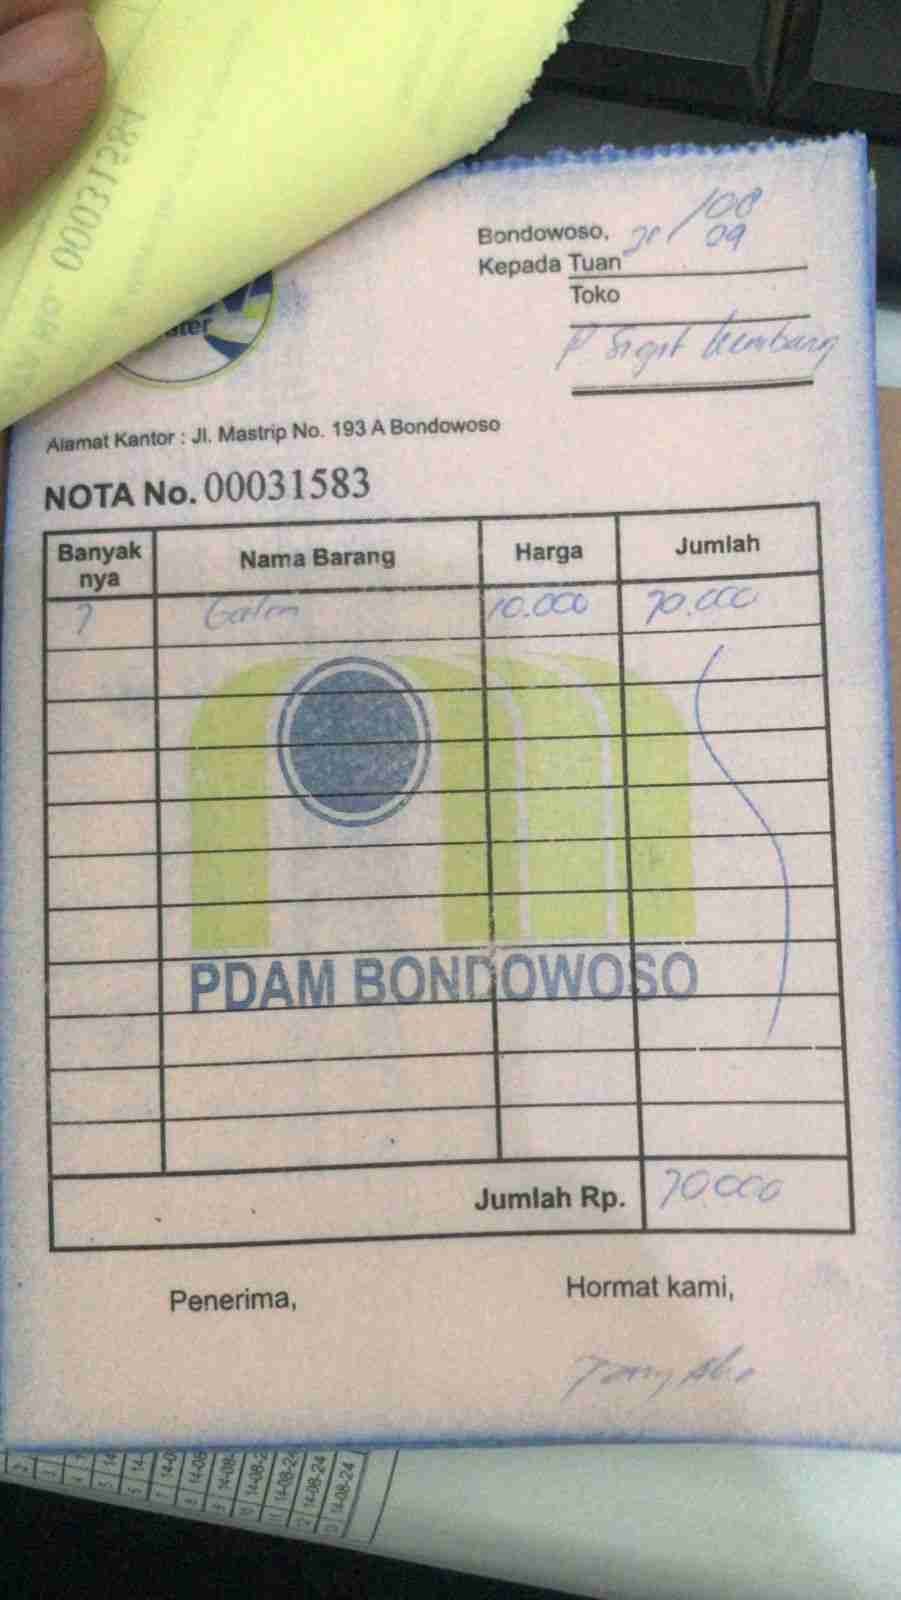 00031584
Bondowoso, 21/08
09
Kepada Tuan
Toko
P Sigit Kembang
Alamat Kantor : Jl. Mastrip No. 193 A Bondowoso
NOTA No. 00031583
Banyak nya Nama Barang Harga Jumlah
7 Galon 10.000 70.000
PDAM BONDOWOSO
Jumlah Rp. 70.000
Penerima, Hormat kami,
14-08-24
14-08-24
14-08-24